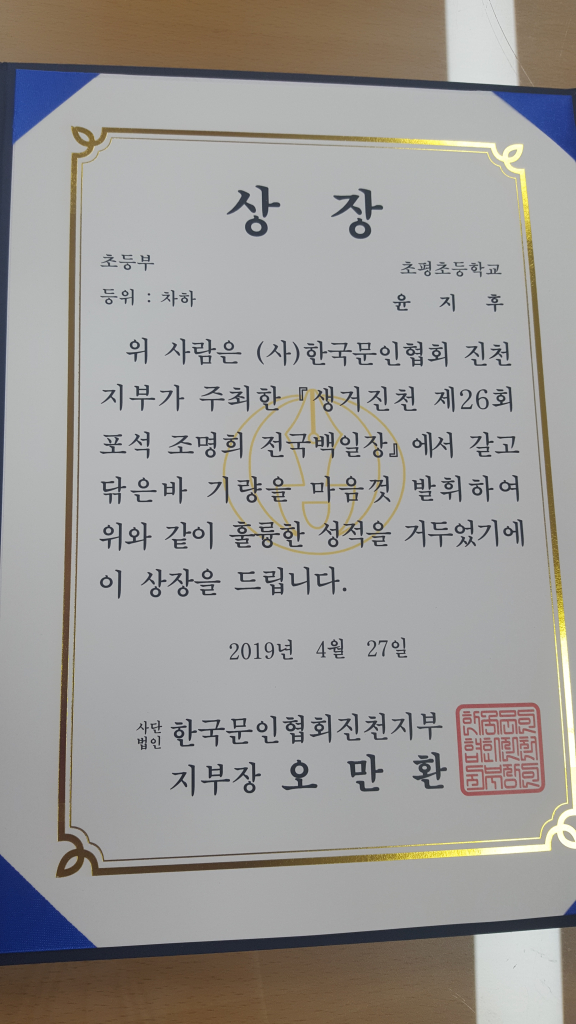 상 장
초등부
초평초등학교
등위 : 차하
윤 지 후
위 사람은 (사)한국문인협회 진천
지부가 주최한 『생거진천 제26회
포석 조명희 전국백일장』에서 갈고
닦은바 기량을 마음껏 발휘하여
위와 같이 훌륭한 성적을 거두었기에
이 상장을 드립니다.
2019년 4월 27일
사단
법인 한국문인협회진천지부
지부장 오 만 환